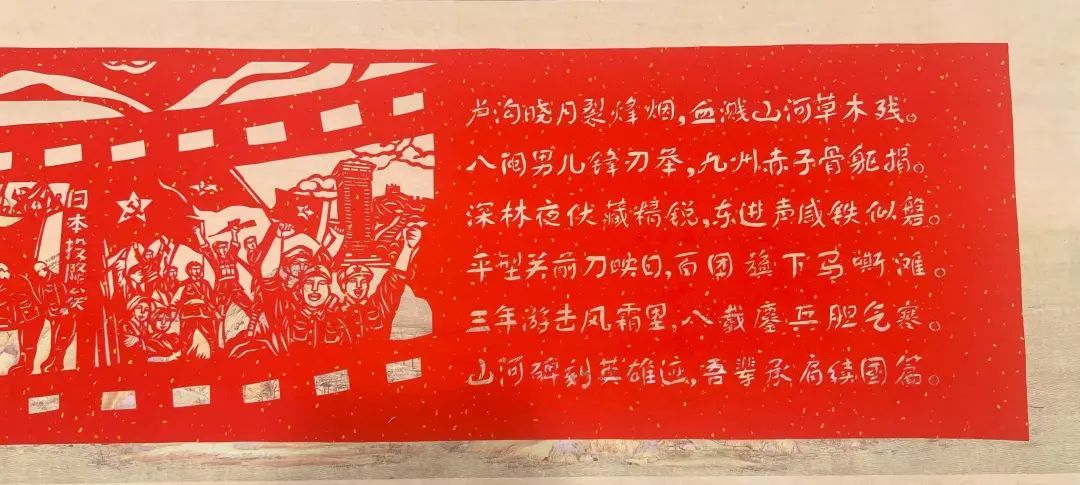 日本投降仪式
卢沟晓月裂烽烟,血溅山河草木残。
八闽男儿锋刃举,九州赤子骨躯捐。
深林夜伏藏精锐,东进声威铁似磐。
平型关前刀映日,百团旗下马嘶滩。
三年游击风霜里,八载鏖兵胆气寒。
山河碑刻英雄迹,吾辈承肩续国篇。